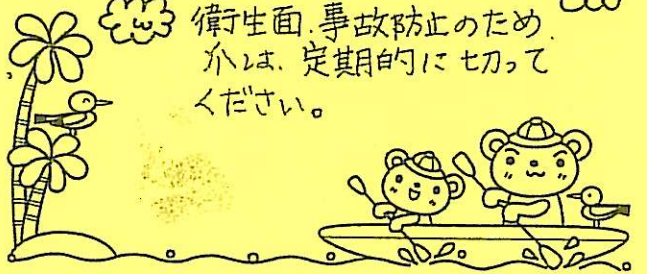 衛生面.事故防止のため
爪は、定期的に切って
ください。